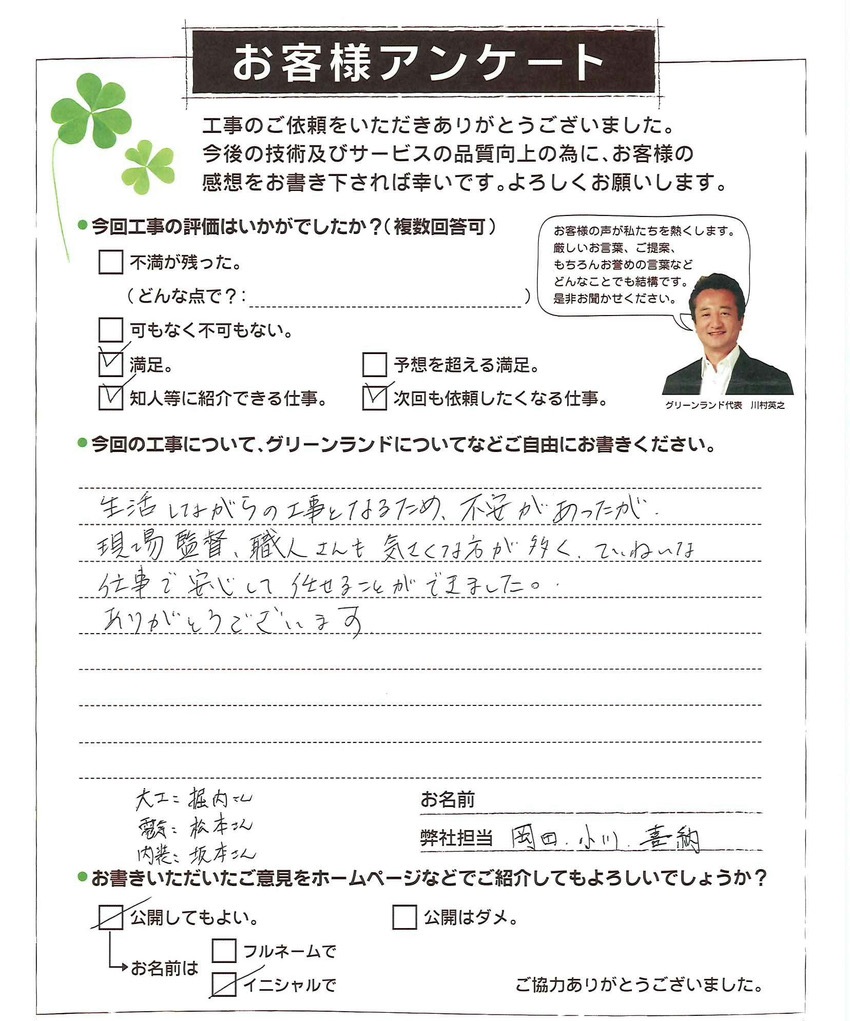 お客様アンケート
工事のご依頼をいただきありがとうございました。
今後の技術及びサービスの品質向上の為に、お客様の
感想をお書き下されば幸いです。よろしくお願いします。
●今回工事の評価はいかがでしたか？（複数回答可）
お客様の声が私たちを熱くします。
厳しいお言葉、ご提案、
もちろんお誉めの言葉など
どんなことでも結構です。
是非お聞かせください。
不満が残った。
（どんな点で？：　）
可もなく不可もない。
満足。
予想を超える満足。
知人等に紹介できる仕事。
次回も依頼したくなる仕事。
グリーンランド代表　川村英之
●今回の工事について、グリーンランドについてなどご自由にお書きください。
生活しながらの工事となるため、不安があったが、
現場監督、職人さんも気さくな方が多く、ていねいな
仕事で安心して任せることができました。
ありがとうございます
大工：堀内さん
電気：松本さん
内装：坂本さん
お名前
弊社担当　岡田、小川、喜納
●お書きいただいたご意見をホームページなどでご紹介してもよろしいでしょうか？
公開してもよい。
公開はダメ。
お名前は
フルネームで
イニシャルで
ご協力ありがとうございました。